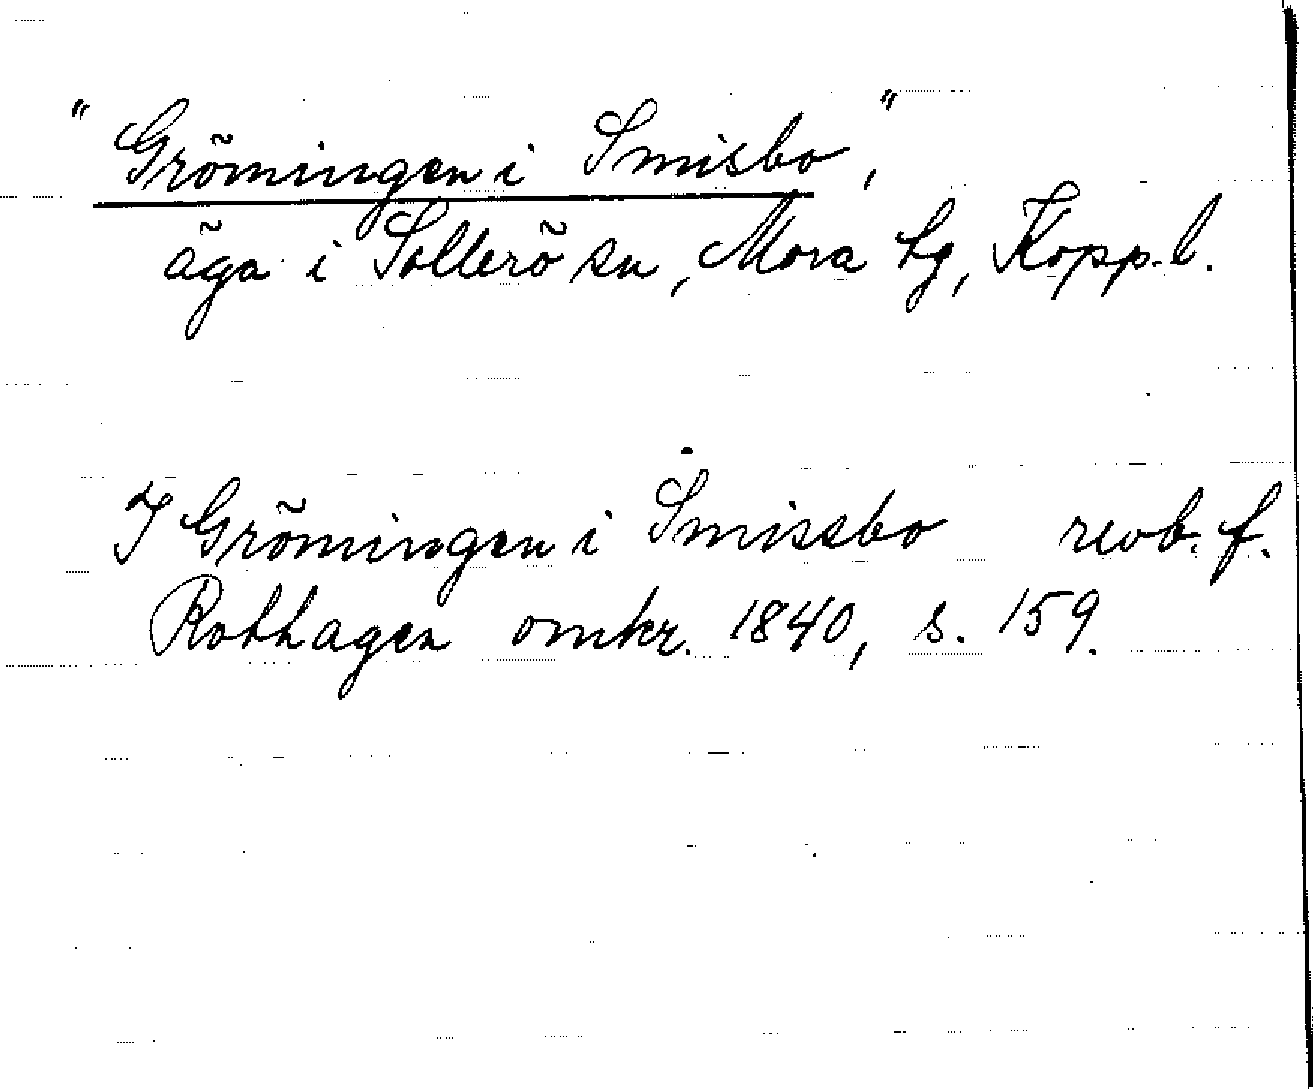 "Grömingen i Smisbo,"
äga i Sollerö sn, Mora tg, Kopp. l.
I Grömingen i Smissbo revb. f.
Rothagen omkr. 1840, s. 159.